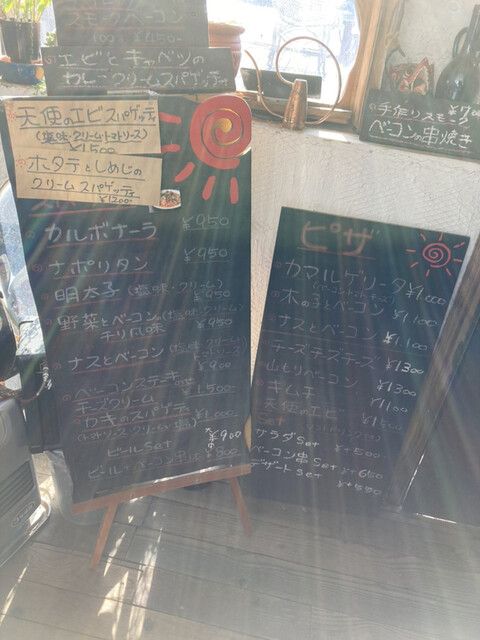 スモークベーコン
エビとキャベツの
カレークリームスパゲッティ
手作りスモーク
ベーコンの串焼き
天使のエビスパゲッティ
(塩味・クリーム・トマトソース)
¥1500
ホタテとしめじの
クリームスパゲッティ
¥1200
カルボナーラ ¥950
ナポリタン ¥950
明太子(塩味・クリーム) ¥950
野菜とベーコン(塩味・クリーム)
チリ風味 ¥950
ナスとベーコン(塩味・クリーム
トマトソース) ¥900
ベーコンステーキのせ
チーズクリーム ¥1500
カキのスパゲティ ¥1,000
(トマトソース・クリーム・塩)
ビールSet ¥900
ビール・ベーコン串 ¥800
ピザ
カマルゲリータ ¥1,000
木の子とベーコン ¥1,100
ナスとベーコン ¥1,100
チーズチーズチーズ ¥1300
山もりベーコン ¥1300
キムチ ¥1100
天使のエビ ¥1500
サラダSet ¥+500
ベーコン串Set ¥+650
デザートSet ¥+550